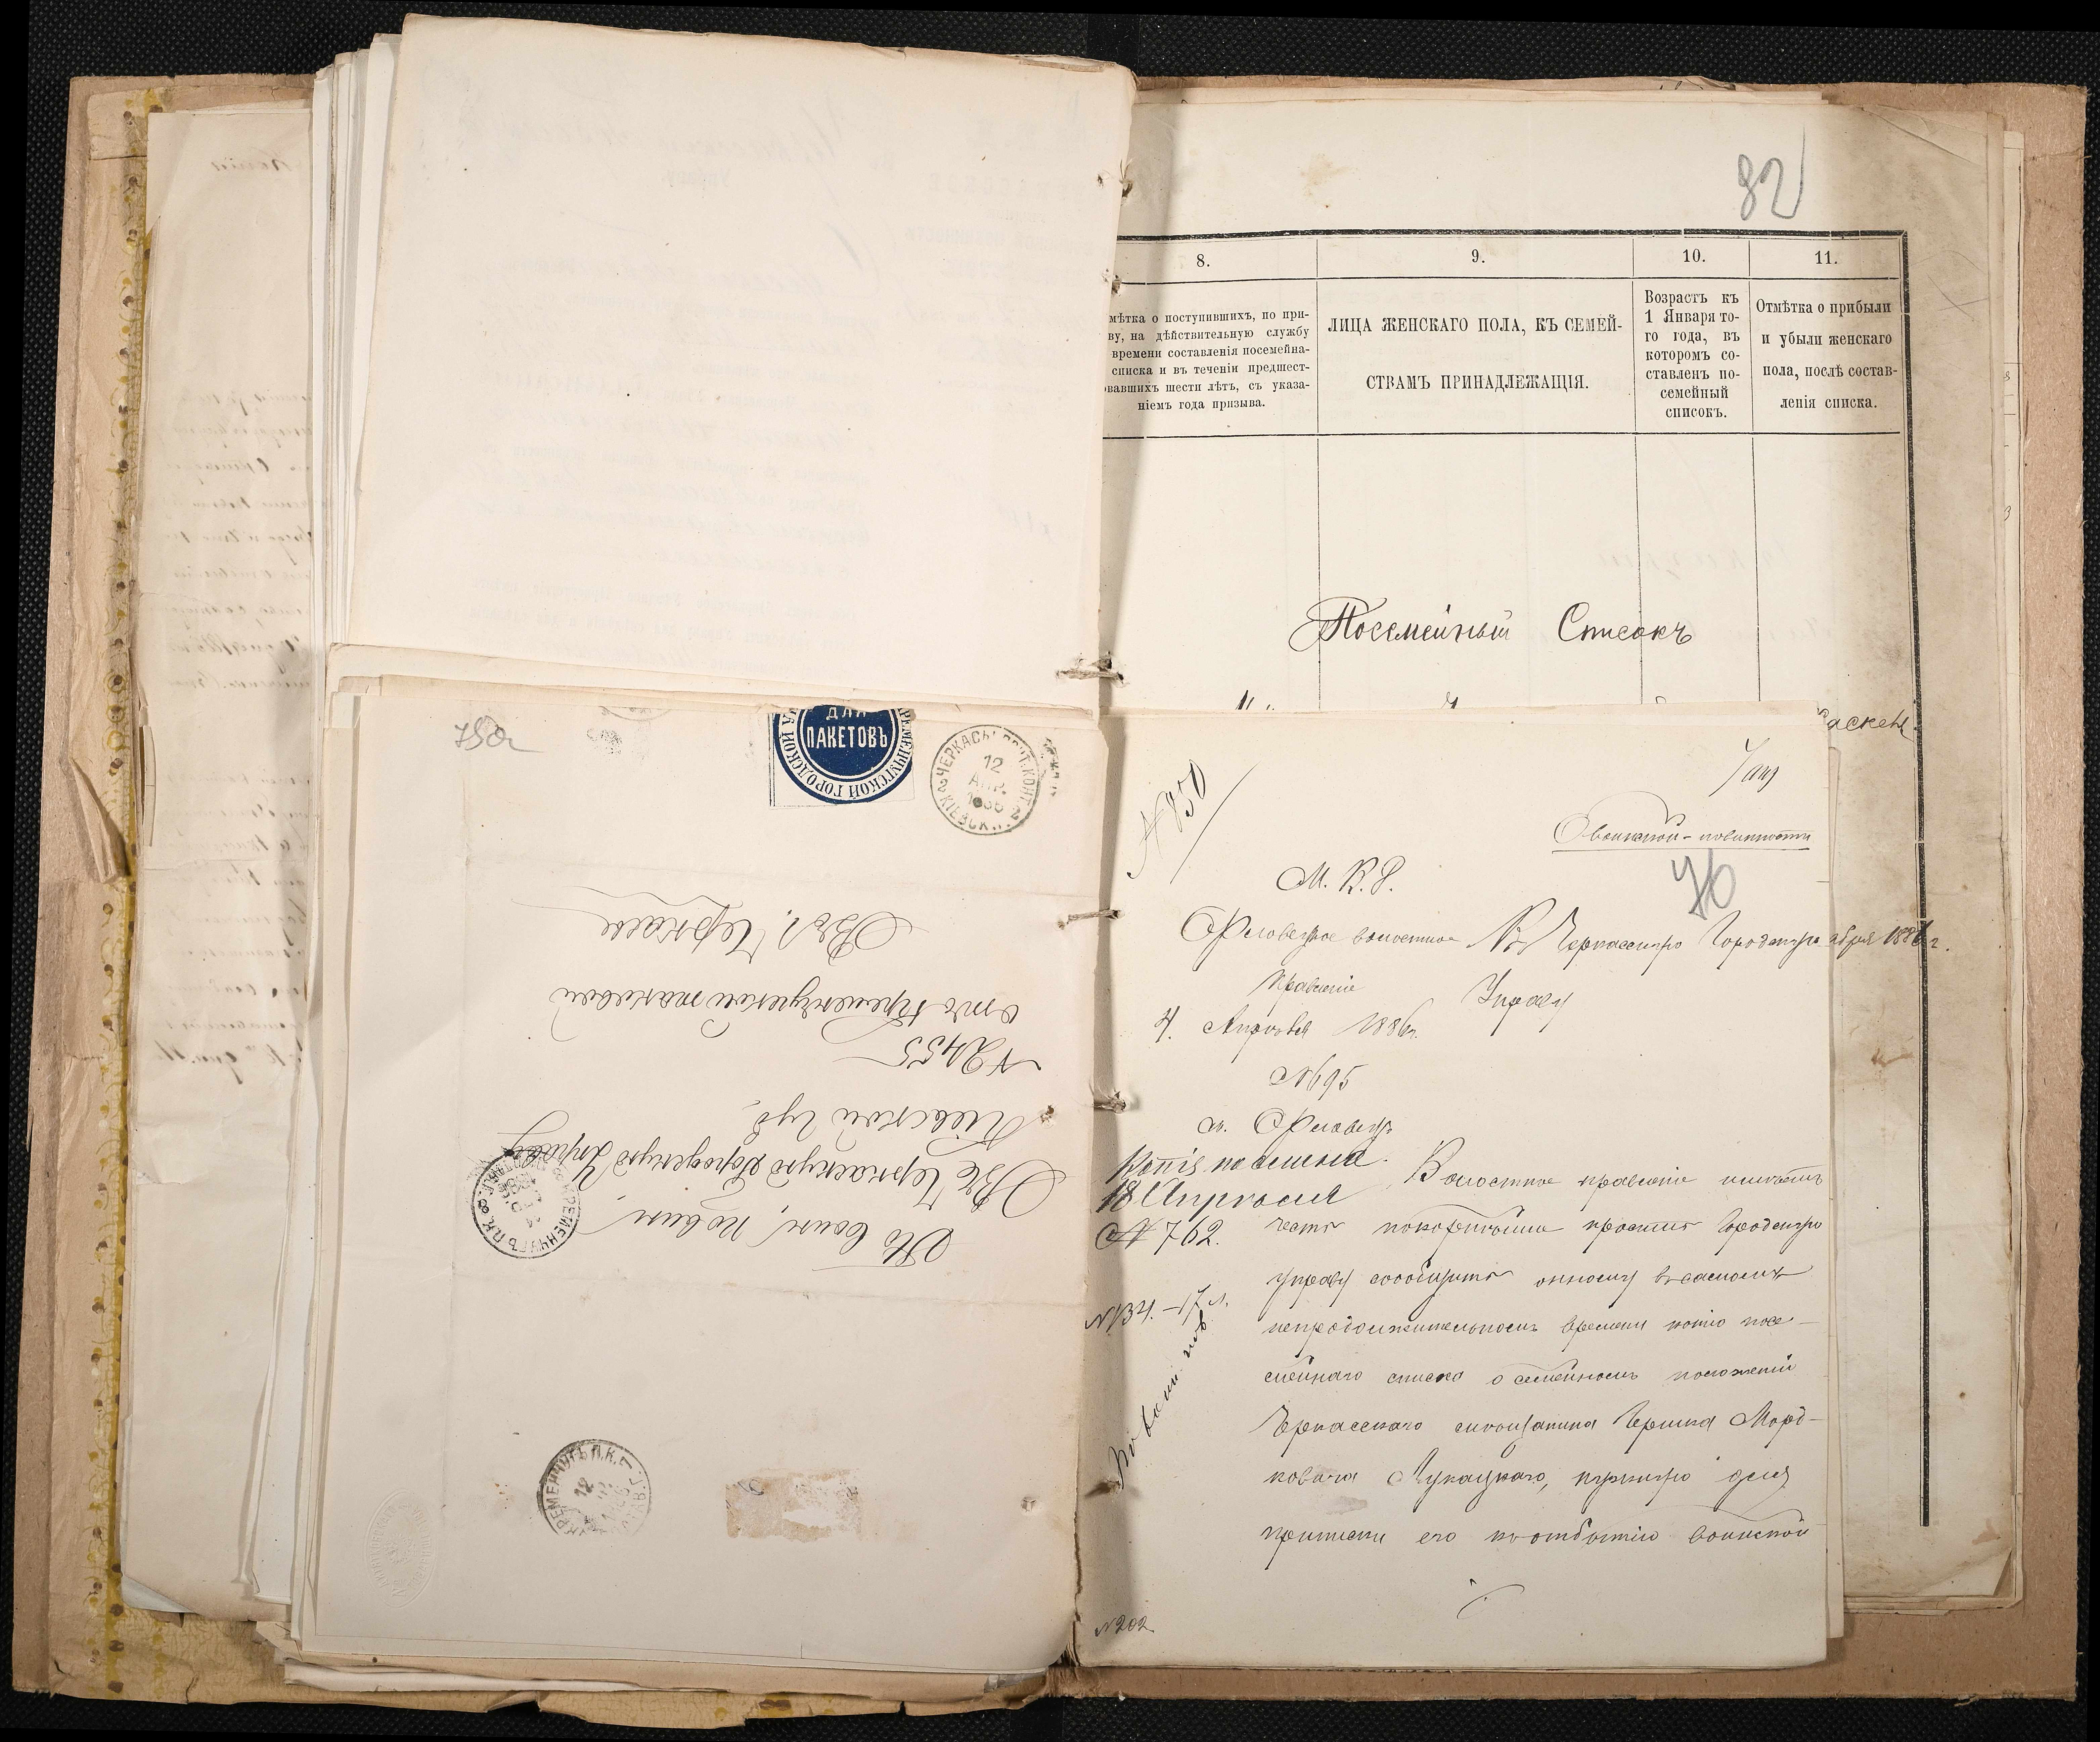 82
8.
9.
10.
11.
мѣтка о поступившихъ, по при-
ву, на дѣйствительную службу
времени составленія посемейна-
списка и въ теченіи предшест-
вавшихъ шести лѣтъ, съ указа-
ніемъ года призыва.
ЛИЦА ЖЕНСКАГО ПОЛА, КЪ СЕМЕЙ-
СТВАМЪ ПРИНАДЛЕЖАЩІЯ.
Возрастъ къ
1 Января то-
го года, въ
которомъ со-
ставленъ по-
семейный
списокъ.
Отмѣтка о прибыли
и убыли женскаго
пола, послѣ состав-
ленія списка.
Посемейный Списокъ
ДЛЯ
ПАКЕТОВЪ
КРЕМЕНЧУГСКОЙ ГОРОДСКОЙ
ЧЕРКАСЫ ПОЧТ. КОНТ.
12
АПР.
1886
КІЕВСК.
По воин. повин.
Въ Черкасскую Городскую Управу
Кіевской губ.
№ 2455
отъ Кременчугской
Въ г. Черкасы
КРЕМЕНЧУГЪ П.К.
КРЕМЕНЧУГЪ П.К.
12
№ 850
О воинской повинности
76
М. В. Д.
волостное
Правленіе
4. Апрѣля 1886 г.
№ 695
Въ Черкасскую Городскую
Управу
абря 1886 г.
Копія послана
18 Апрѣля
№ 762.
№ 134. – 17 л.
По воин. пов.
Волостное правленіе имѣетъ
честь покорнѣйше просить Городскую
Управу сообщить оному въ самомъ
непродолжительномъ времени копію посе-
мейнаго списка о семейномъ положеніи
Черкасскаго мѣщанина Гершка Морд-
ковича Лукацкаго, нужную для
приписки его къ отбытію воинской
№ 202